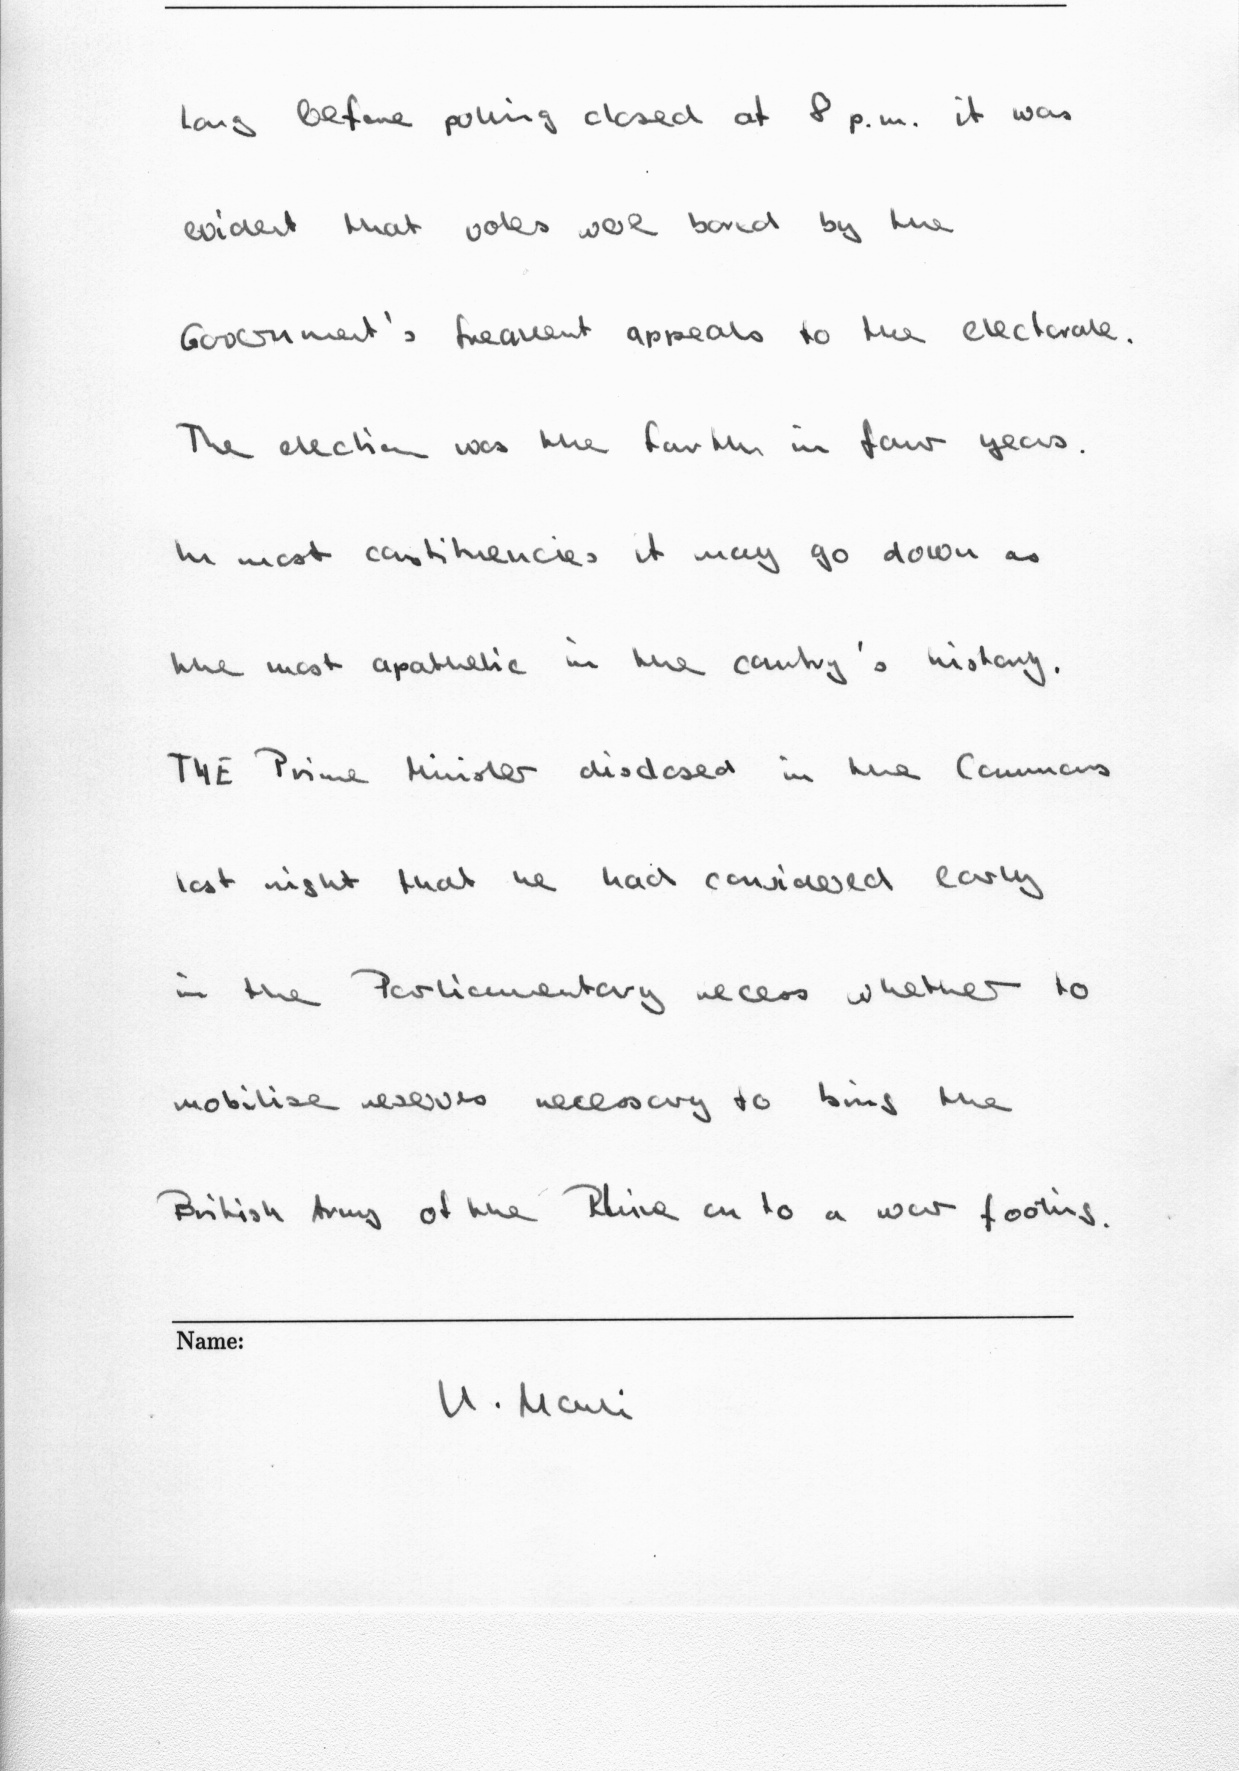 Long before polling closed at 8 p.m. it was
evident that voters were bored by the
Government's frequent appeals to the electorate.
The election was the fourth in four years.
In most constituencies it may go down as
the most apathetic in the country's history.
THE Prime Minister disclosed in the Commons
last night that he had considered early
in the Parliamentary recess whether to
mobilise reserves necessary to bring the
British Army of the Rhine on to a war footing.
Name: